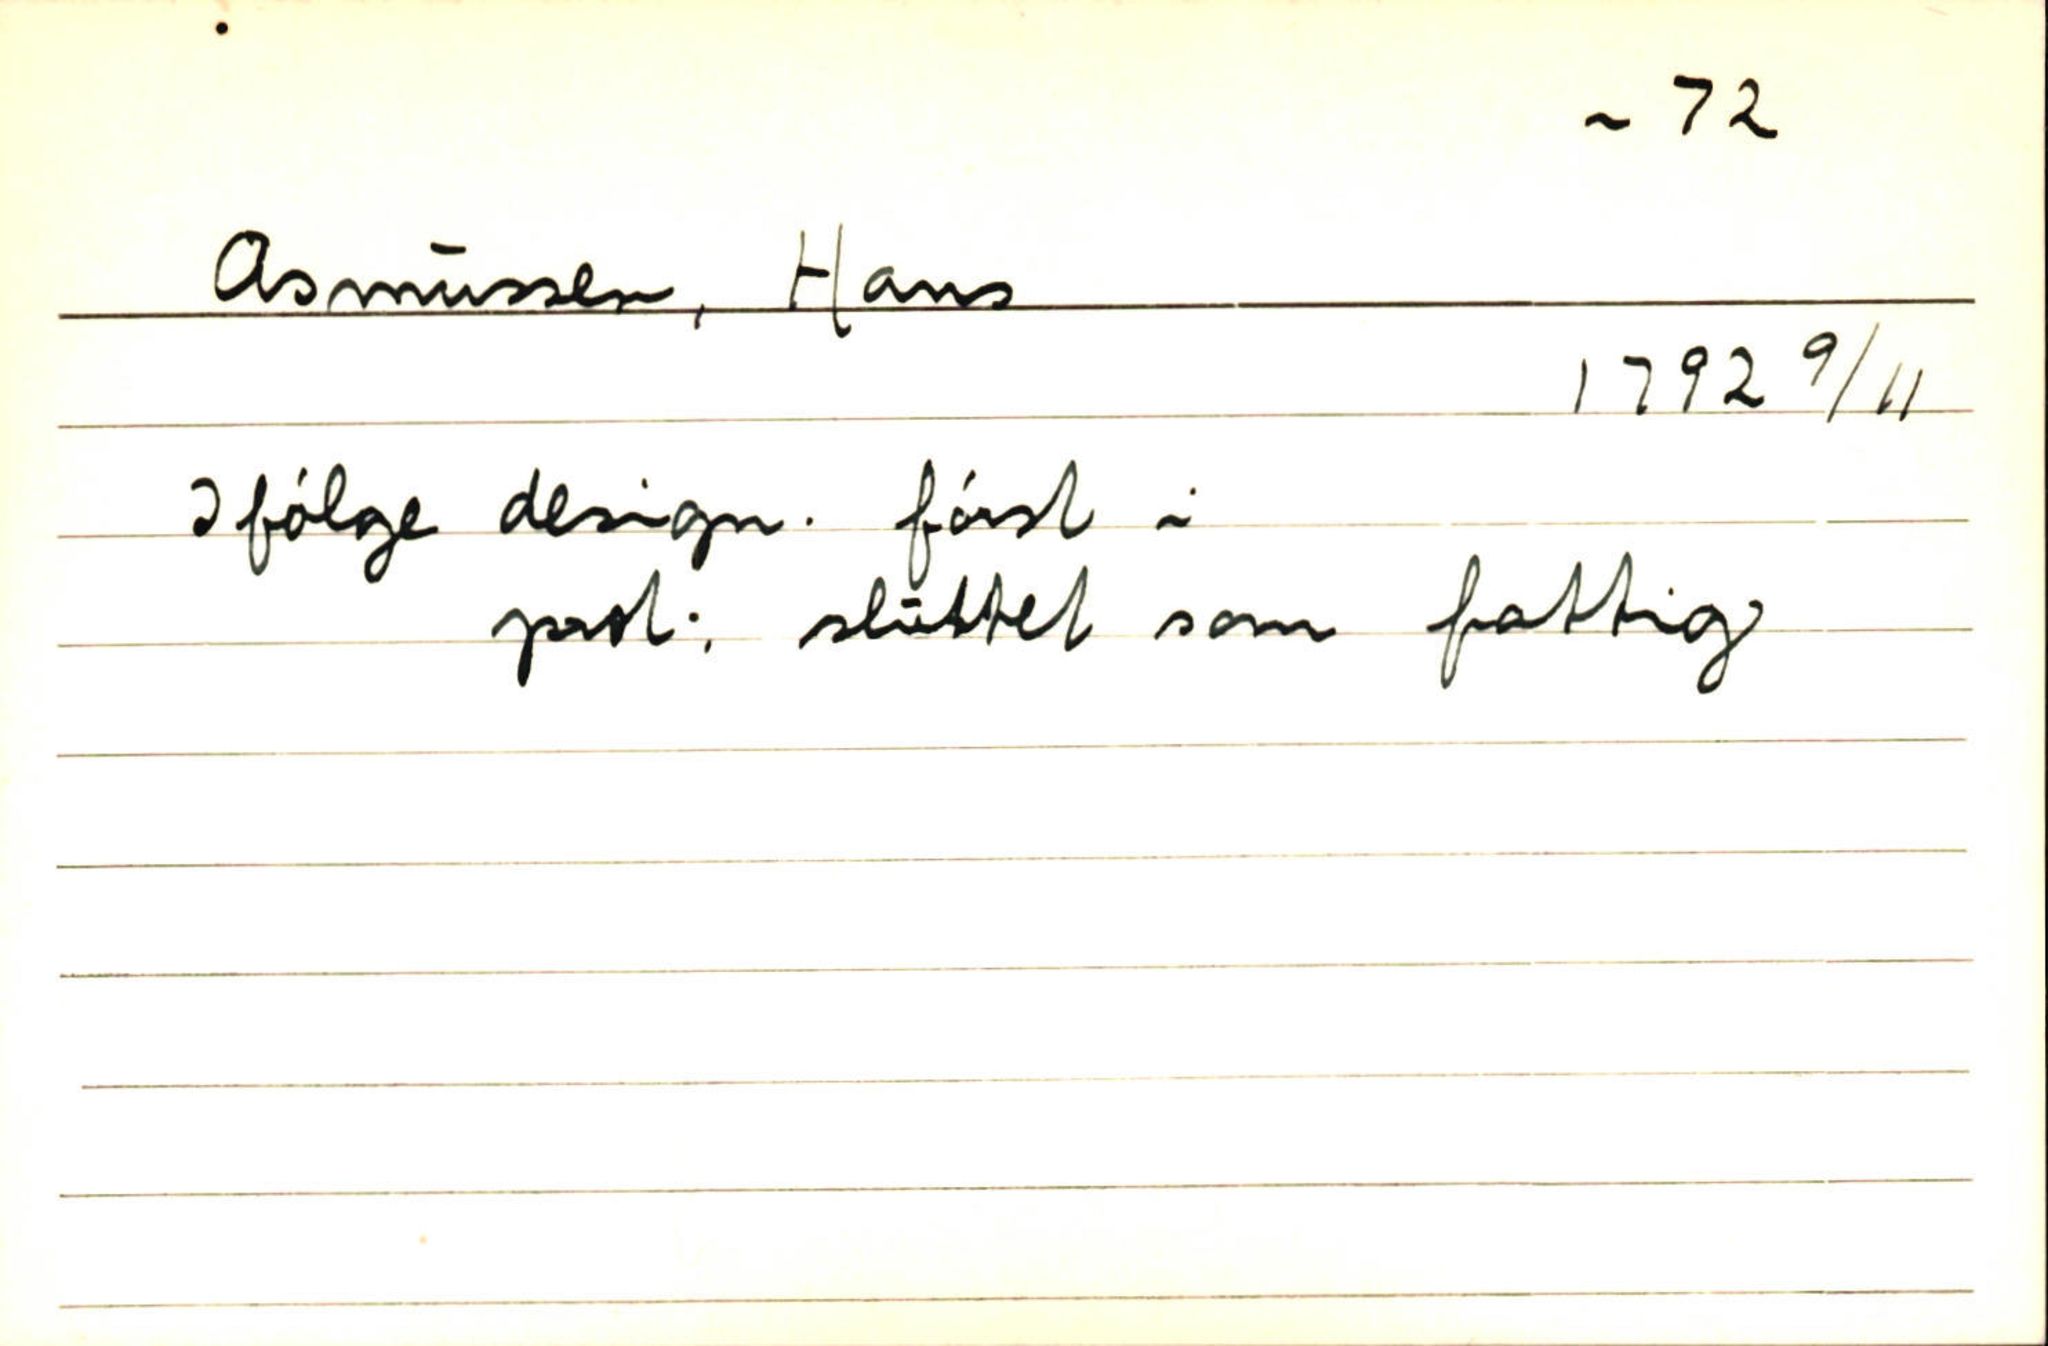 ~ 72
Asmussen, Hans
1792 9/11
Ifølge design. først i
prot.; sluttet som fattig